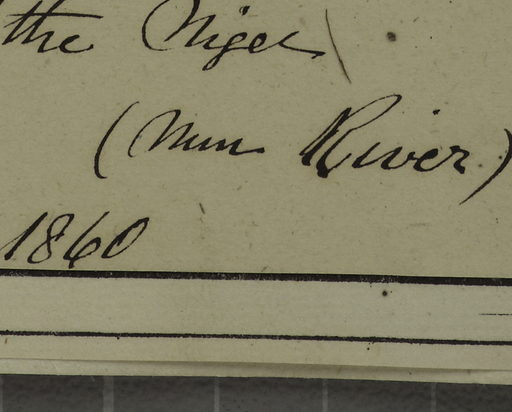 the Niger
(Nun River)
1860